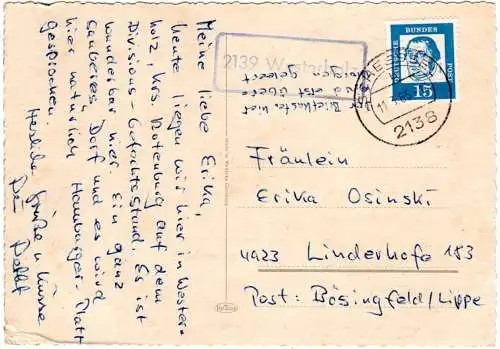 Meine liebe Erika,
heute liegen wir hier in Wester-
holz, Krs. Rotenburg auf dem
Divisions-Gefechtsstand. Es ist
wunderbar hier. Ein ganz
sauberes Dorf und es wird
hier natürlich Hamburger Platt
gesprochen.
Herzliche Grüße u. Küsse
Dein
2139 Westerholz
Briefkasten hier
wird erst übermorgen geleert
DEUTSCHE BUNDESPOST
15
SCHEESSEL
2138
Fräulein
Erika Osinski
4923 Linderhofe 183
Post: Bösingfeld/Lippe